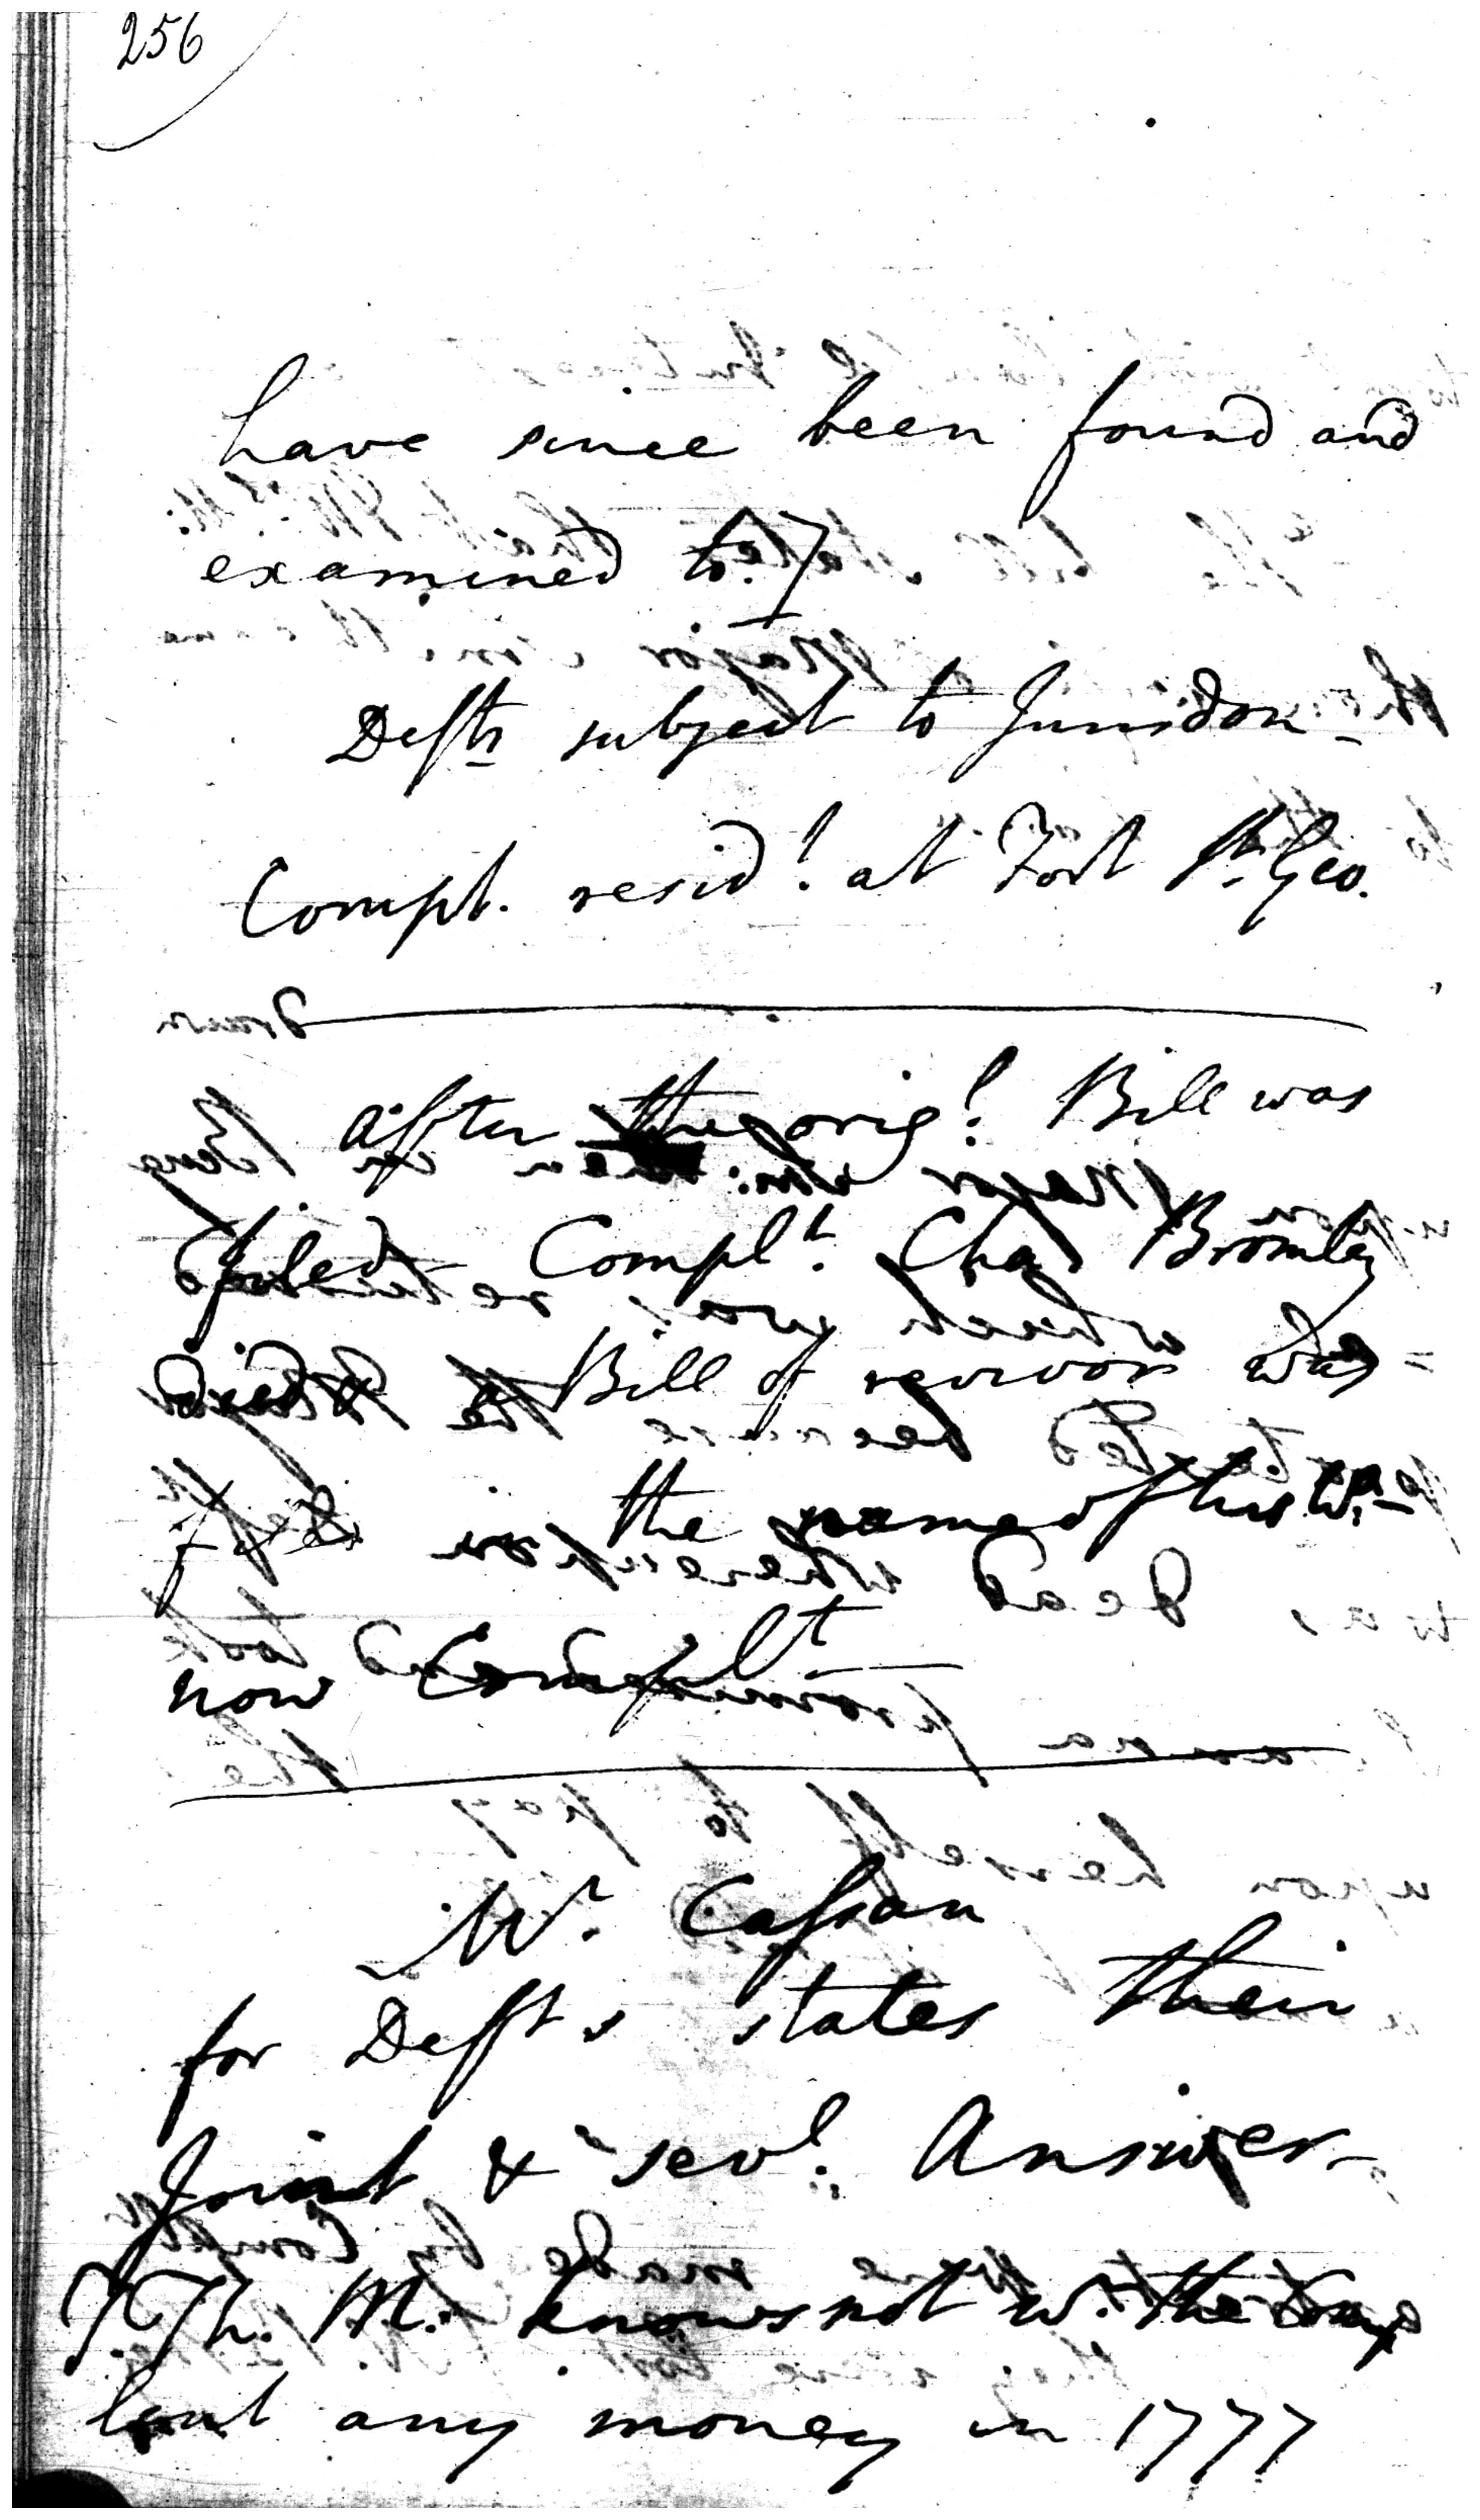 256
have since been found and
examined to.]
Defts subject to Jurisdon -
Compt. resid! at Fort St. Geo.
After the orig! Bill was
filed - Complt. Chas Bromley
died & a Bill of revivor was
filed in the name of his W.
now Complt
Mr. Cassan
for Defts states their
Joint & sev! Answer -
Th. M. knows not w. the
lent any money in 1777